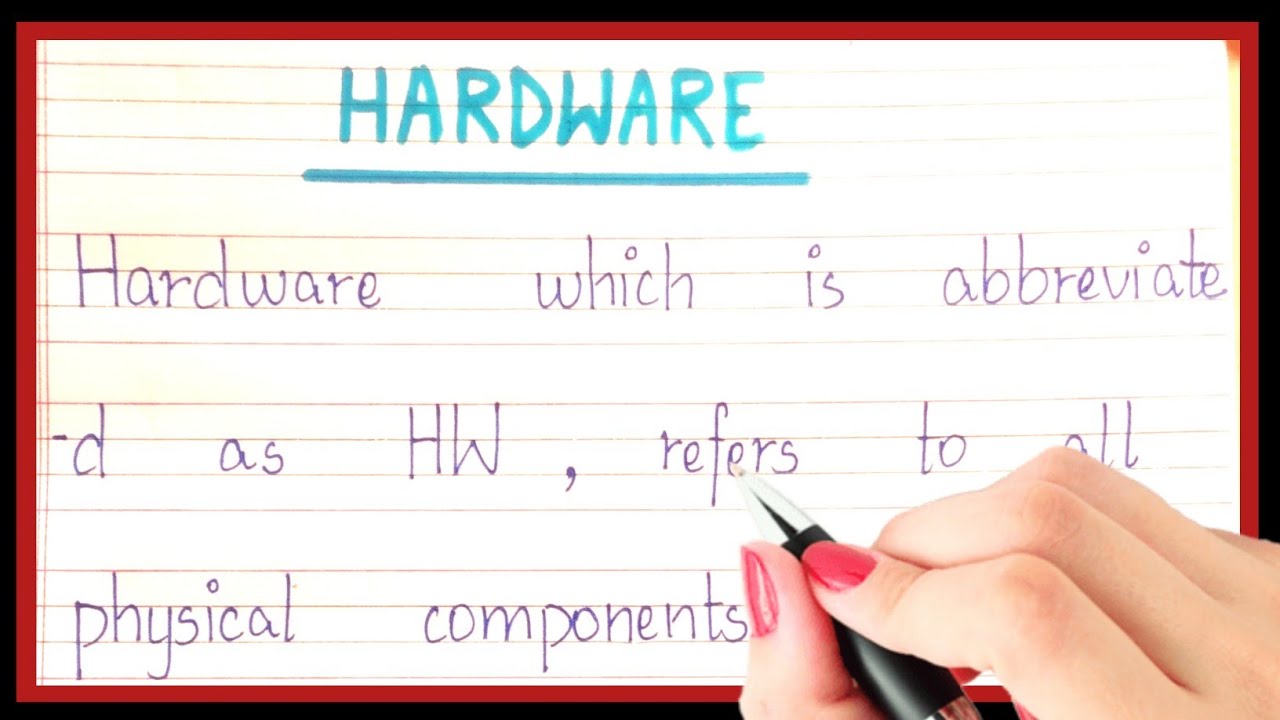 HARDWARE
Hardware which is abbreviate
-d as HW, refers to all
physical components